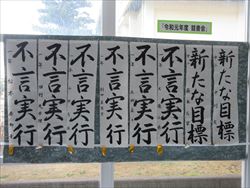 「令和元年度 競書会」
新たな目標
新たな目標
不言実行
不言実行
不言実行
不言実行
不言実行
不言実行